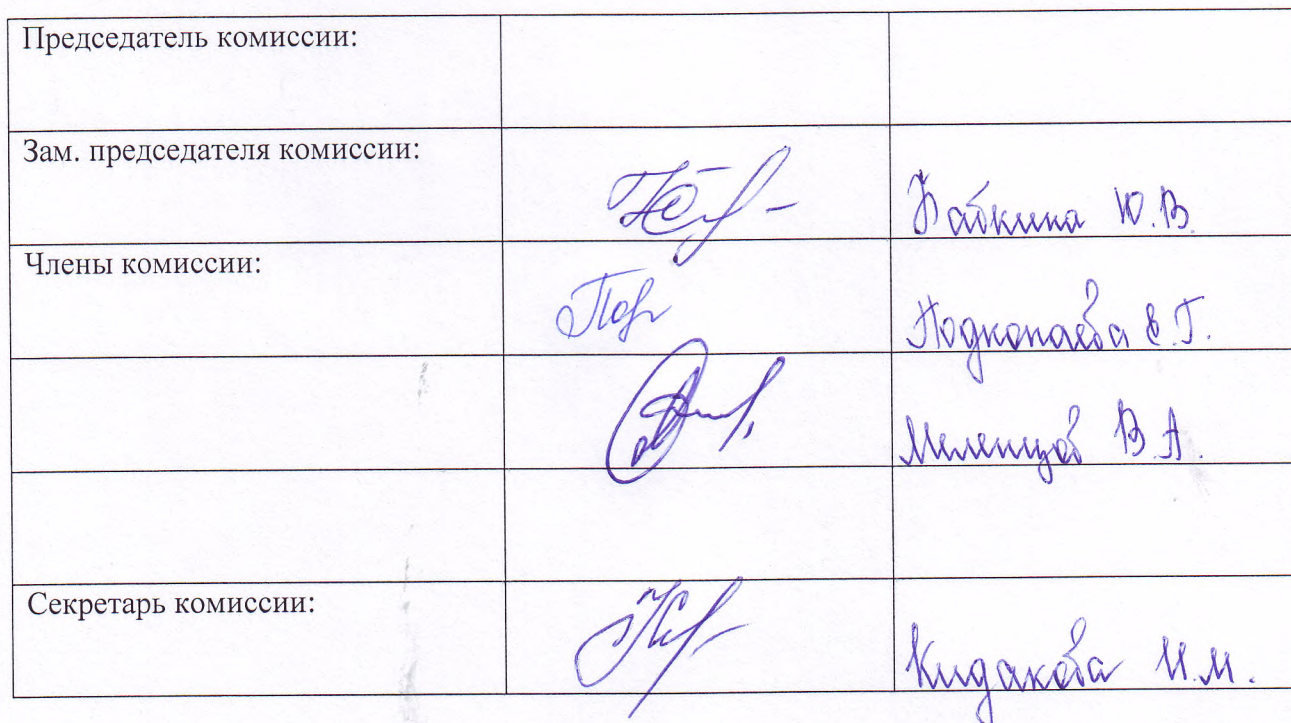 Председатель комиссии:
Зам. председателя комиссии:
Бабкина Ю.В.
Члены комиссии:
Подкопаева Е.Г.
Меленцов В.А.
Секретарь комиссии:
Кидакова И.М.